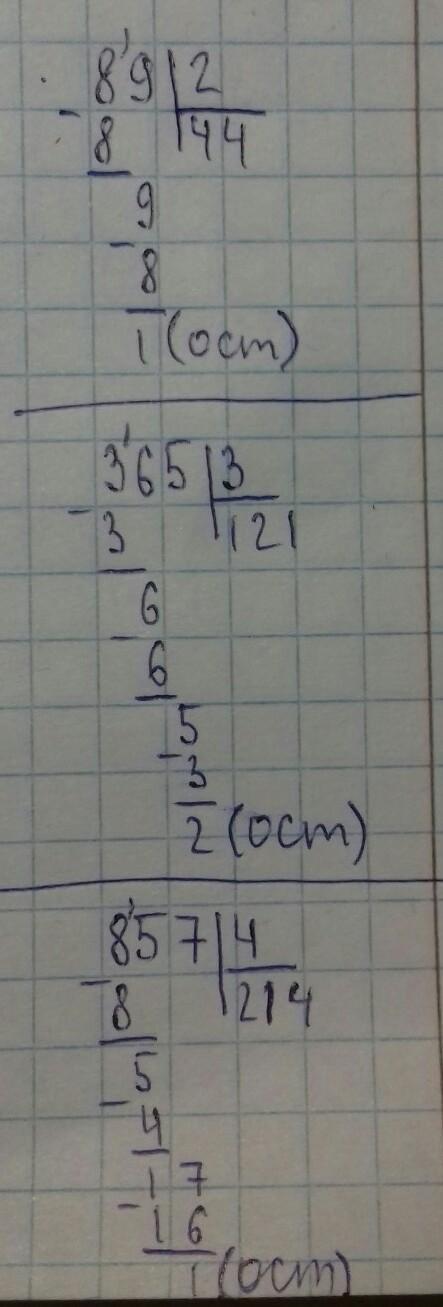 8'9 | 2
- 8 | 44
9
- 8
1 (ост)
3'65 | 3
- 3 | 121
6
- 6
5
- 3
2 (ост)
8'57 | 4
- 8 | 214
5
- 4
17
- 16
1 (ост)